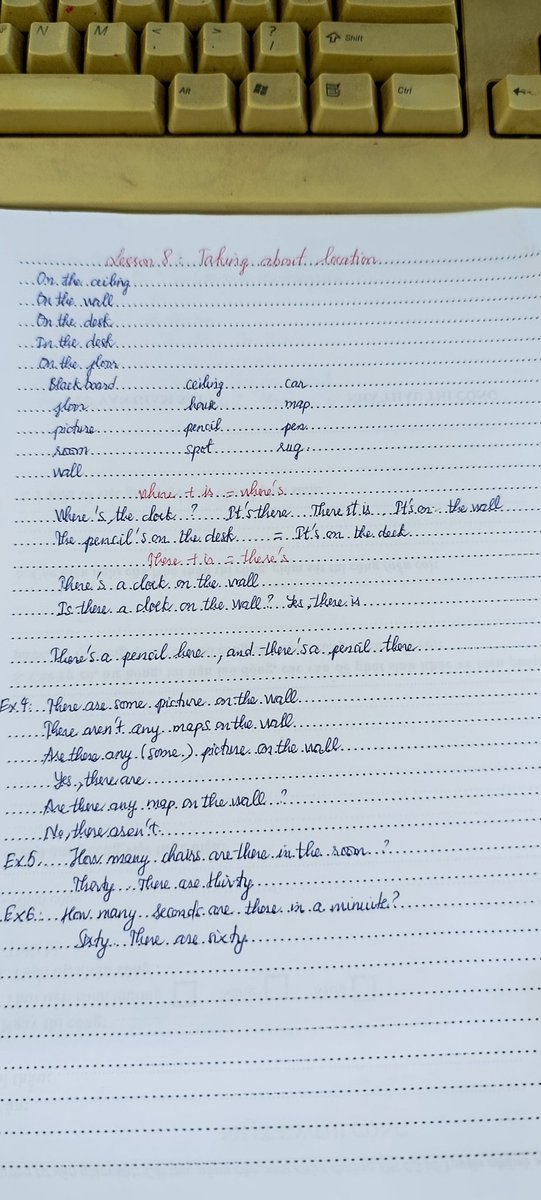 N M < , > . ? / Shift
Alt Ctrl
Lesson 8: Taking about location
On the ceiling
On the wall
On the desk
In the desk
On the floor
Blackboard ceiling car
floor house map
picture pencil pen
room spot rug
wall
where + is = where's
Where's the clock? It's there There it is It's on the wall
The pencil's on the desk = It's on the desk
There + is = there's
There's a clock on the wall
Is there a clock on the wall? Yes, there is
There's a pencil here, and there's a pencil there
Ex.4: There are some picture on the wall
There aren't any maps on the wall
Are there any (some) picture on the wall
Yes, there are
Are there any map on the wall?
No, there aren't
Ex5. How many chairs are there in the room?
Thirty There are thirty
Ex6: How many seconds are there in a minute?
Sixty There are sixty